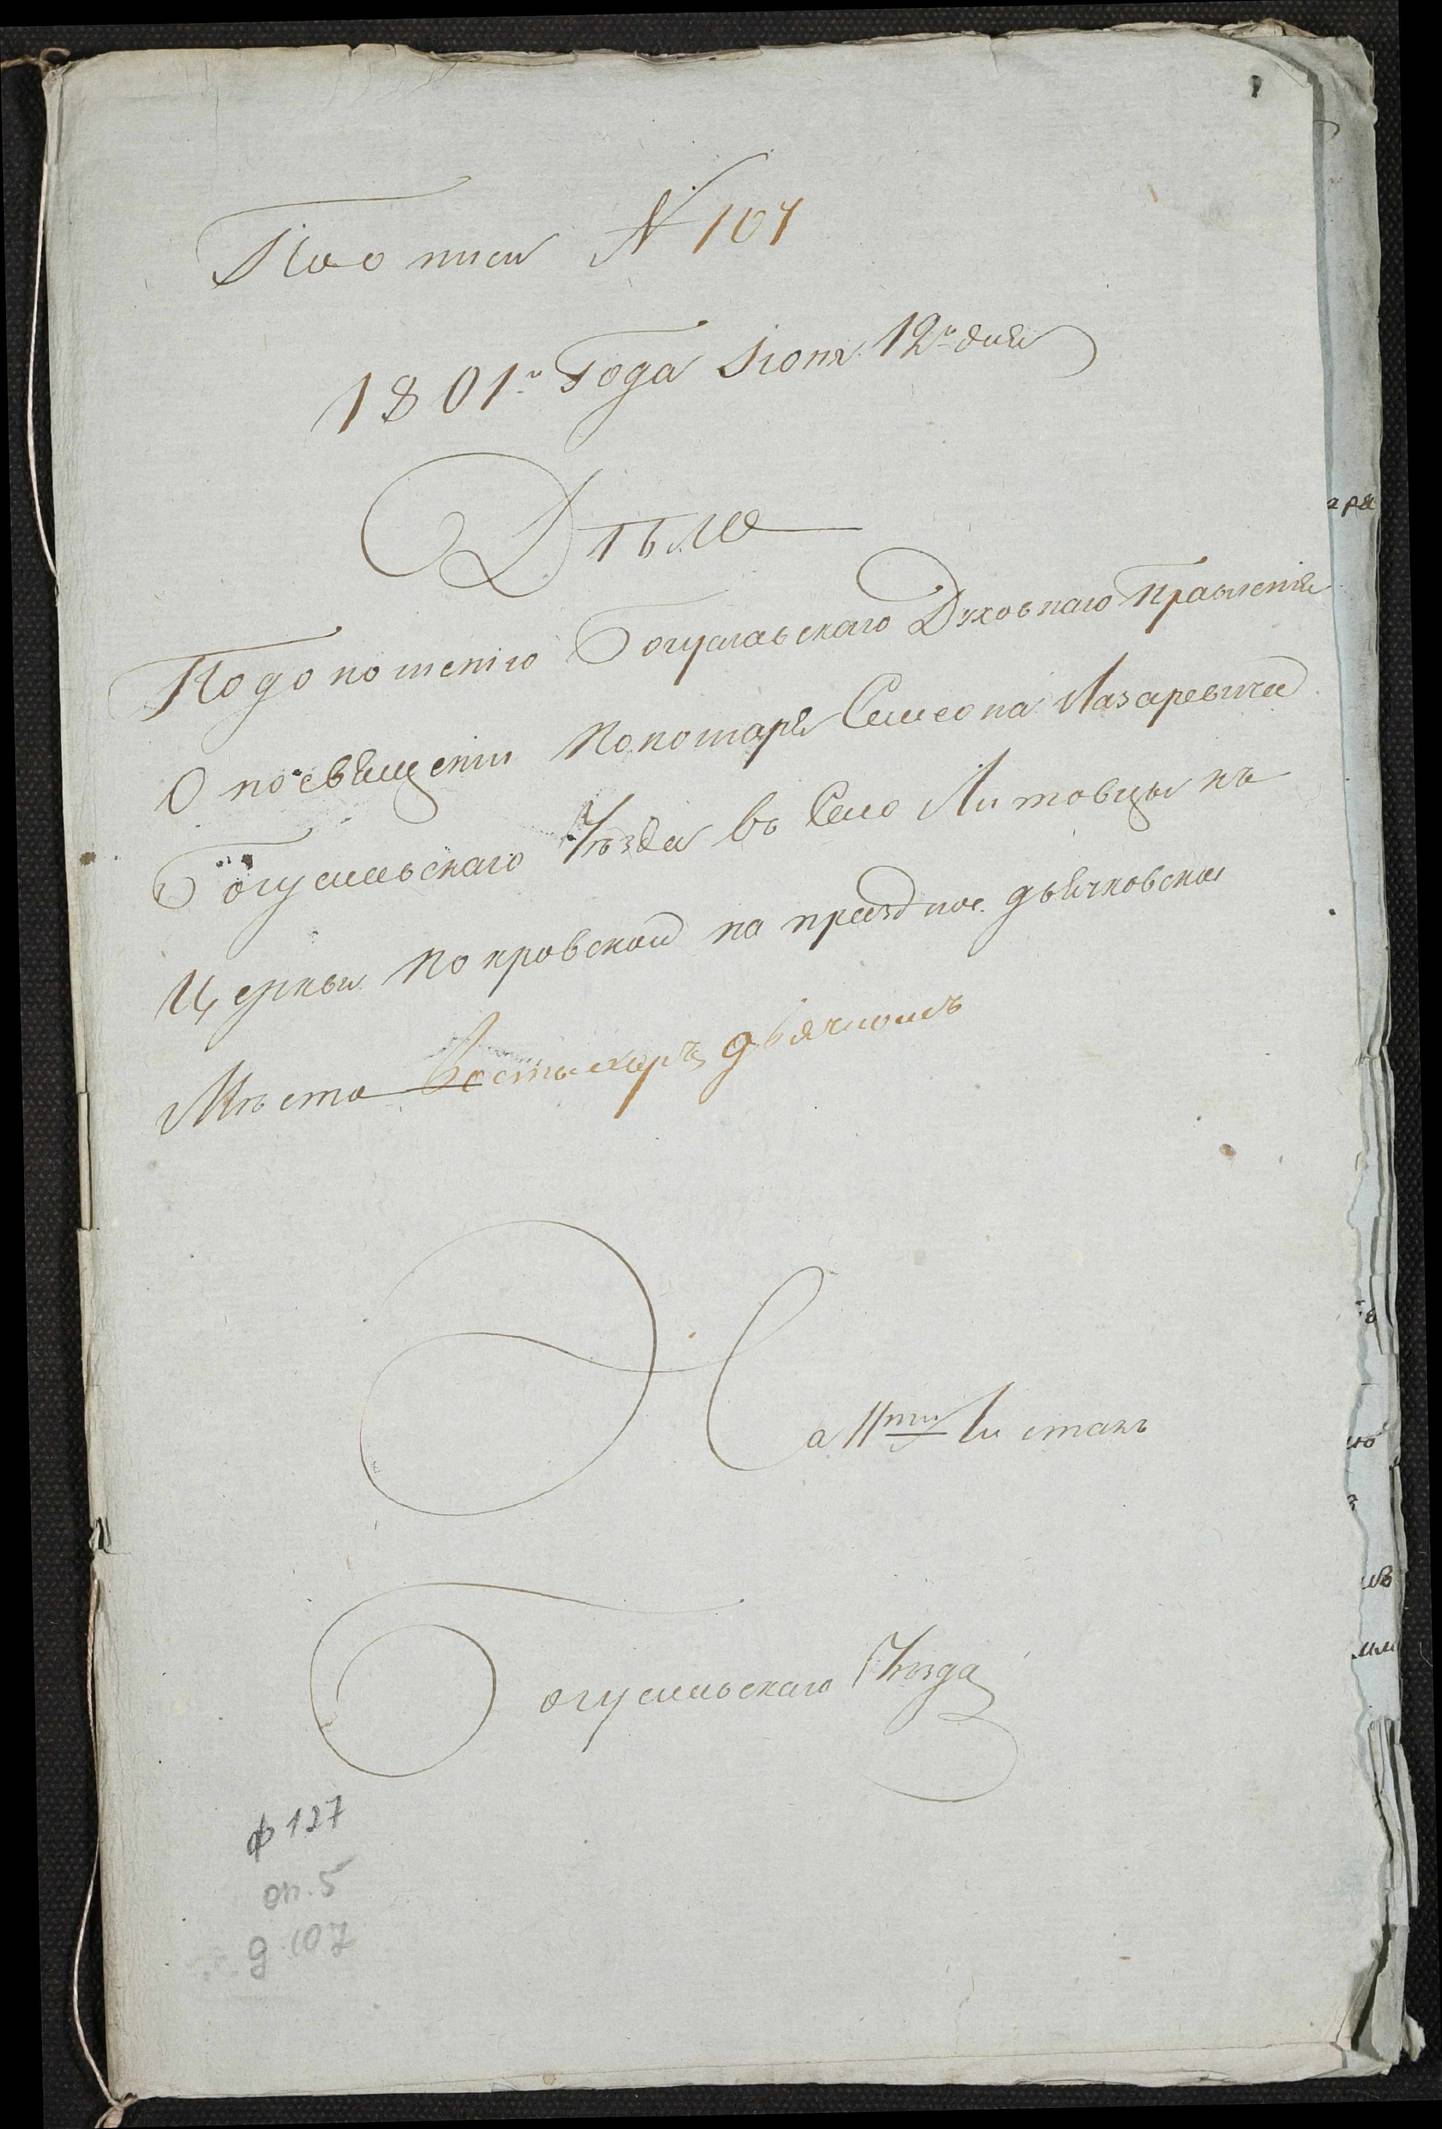 По описи № 107
1801го Года Іюня 12го дня
Дѣло
По доношенію Богуславскаго Духовнаго Правленія
О посвященіи Пономаря Симеона Лазаревича
Богуславскаго Уѣзда въ Село Литовцы къ
Церкви Покровской на праздное дьячковское
Мѣсто въ стихарь дьячкомъ
На 11ти Листахъ
Богуславскаго Уѣзда
ф 127
оп. 5
д. 107